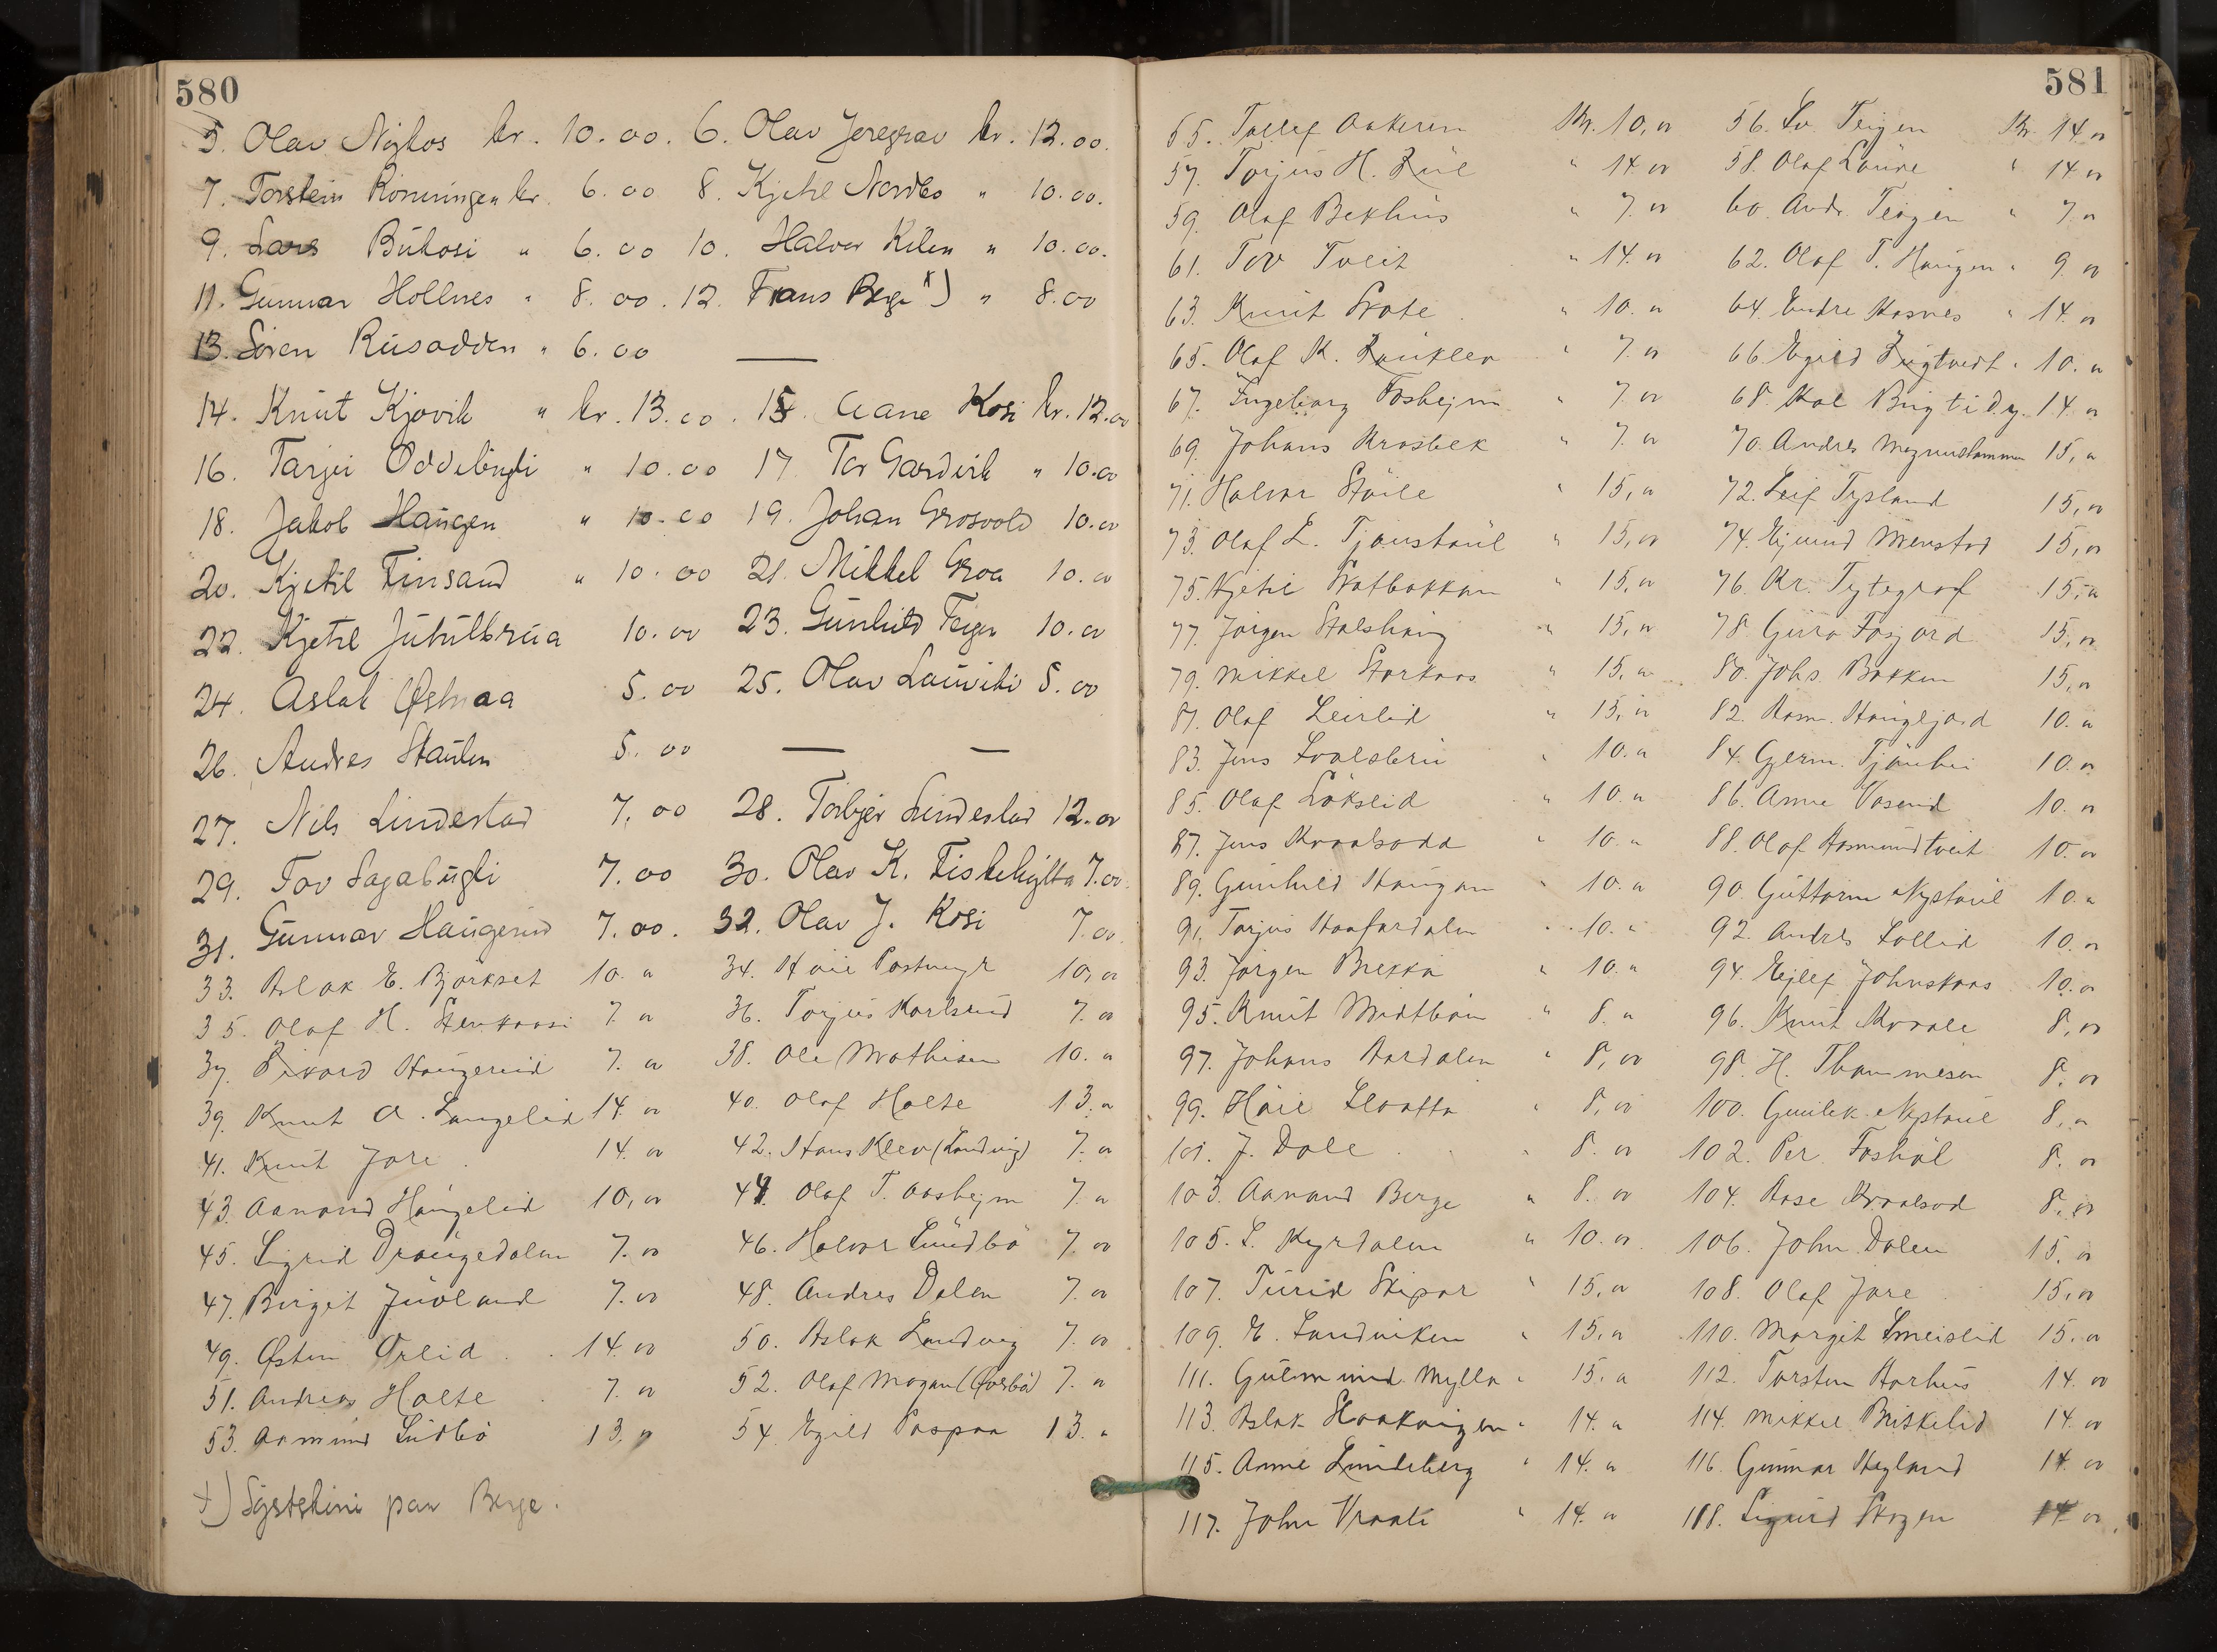 580
5. Olav Nigkos kr. 10.00. 6. Olav Joregrav kr. 12.00.
7. Torstein Rönningen kr. 6.00 8. Kjetil Nordbö " 10.00.
9. Lars Bükosi " 6.00 10. Halvor Kilen " 10.00.
11. Gunnar Hollnes " 8.00. 12. Frans Berge x) " 8.00
13. Sören Rusodden " 6.00 —
14. Knut Kjovik " kr. 13.00. 15. Aane Kosi kr. 12.00
16. Tarjei Oddebugli " 10.00 17. Tor Gardvik " 10.00
18. Jakob Haugen " 10.00 19. Johan Grosvold 10.00
20. Kjetil Finsand " 10.00 21. Mikkel Groa 10.00
22. Kjetil Jutulbrua 10.00 23. Gunhild Teigen 10.00
24. Aslak Østnaa 5.00 25. Olav Lauviki 5.00
26. Andres Staulen 5.00 — —
27. Nils Lindestad 7.00 28. Torbjør Lindestad 12.00
29. Tov Sagabugli 7.00 30. Olav K. Fiskekytta 7.00.
31. Gunnar Haugerud 7.00. 32. Olav J. Kosi 7.00.
33. Aslak E. Bjørkset 10.00 34. Høie Postmyr 10,00
35. Olaf H. Stenkaasi 7.00 36. Torjus Karlsrud 7.00
37. Sivard Haugerud 7.00 38. Ole Mathisen 10.00
39. Knut A. Langelid 14.00 40. Olaf Holte 13.00
41. Knut Jore 14.00 42. Hans Klev (Landvig) 7.00
43. Aanand Haugelid 10,00 44. Olaf T. Aasheim 7.00
45. Sigrid Draugedalen 7.00 46. Halvor Sundbø 7.00
47. Birgit Juvland 7.00 48. Andres Dalen 7.00
49. Østen Ørlid 14.00 50. Aslak Landvig 7.00
51. Andreas Holte 7.00 52. Olaf Mogan (Øvrebø) 7.00
53. Aamund Sudbø 13.00 54. Egild Paspaa 13.00
+) Systskini paa Berge.
581
55. Tallef Aakeren Kr. 10,00 56. Sv. Teigen Kr. 14.00
57. Torjus H. Kül " 14.00 58. Olaf Laure " 14.00
59. Olaf Bekhus " 7.00 60. Andr. Teigen " 7.00
61. Tov Tveit " 14.00 62. Olaf T. Haugen " 9.00
63. Knut Skote " 10.00 64. Endre Hosnes " 14.00
65. Olaf K. " 7.00 66. Egild " 10.00
67. Ingeborg Fosheim " 7.00 68. Kol 14.00
69. Johans Krosbek " 7.00 70. Andres 15,00
71. Halvor Støile " 15,00 72. Leif Tysland 15,00
73. Olaf L. Tjønstaul " 15,00 74. Ejvind Menstad 15,00
75. Kjetil Skotbakkan " 15,00 76. Kr. Tytegraf 15,00
77. Jørgen Stalshaug " 15,00 78. Guro Fosjord 15,00
79. Mikkel Storkaas " 15,00 80. Johs. Bakken 15,00
81. Olaf Leirlid " 15,00 82. Aasm. Haugljord 10.00
83. Jens " 10.00 84. Germ. Tjønhei 10.00
85. Olaf Løkslid " 10.00 86. Anne Vasend 10.00
87. Jens Kraalsodd " 10.00 88. Olaf Aasmundtveit 10.00
89. Gunhild Haugan " 10.00 90. Guttorm Nystaul 10.00
91. Torjus Haafardalen 10.00 92. Andres Lollid 10.00
93. Jørgen Brekka " 10.00 94. Ejlef Johnskaas 10.00
95. Knut Midtbøen " 8.00 96. Knut Kraale 8,00
97. Johans Aardalen " 8,00 98. H. Thommesen 8.00
99. Høie Slaatta " 8,00 100. Gunlek Nystaul 8,00
101. J. Dale " 8.00 102. Per Foshøl 8.00
103. Aanund Berge " 8.00 104. Aase Kraalsod 8.00
105. S. Kyrdalen " 10.00 106. John Dalen 15.00
107. Turid Skipar " 15,00 108. Olaf Jore 15,00
109. E. Sandviken " 15,00 110. Margit Smeislid 15.00
111. Gulmund Mylla " 15.00 112. Torsten Aarhus 14.00
113. Aslak Haakaugen " 14.00 114. Mikkel Briskelid 14.00
115. Anne Lindeberg " 14.00 116. Gunnar Høgland 14.00
117. John Vraale " 14.00 118. Sigurd Skogen 14.00.